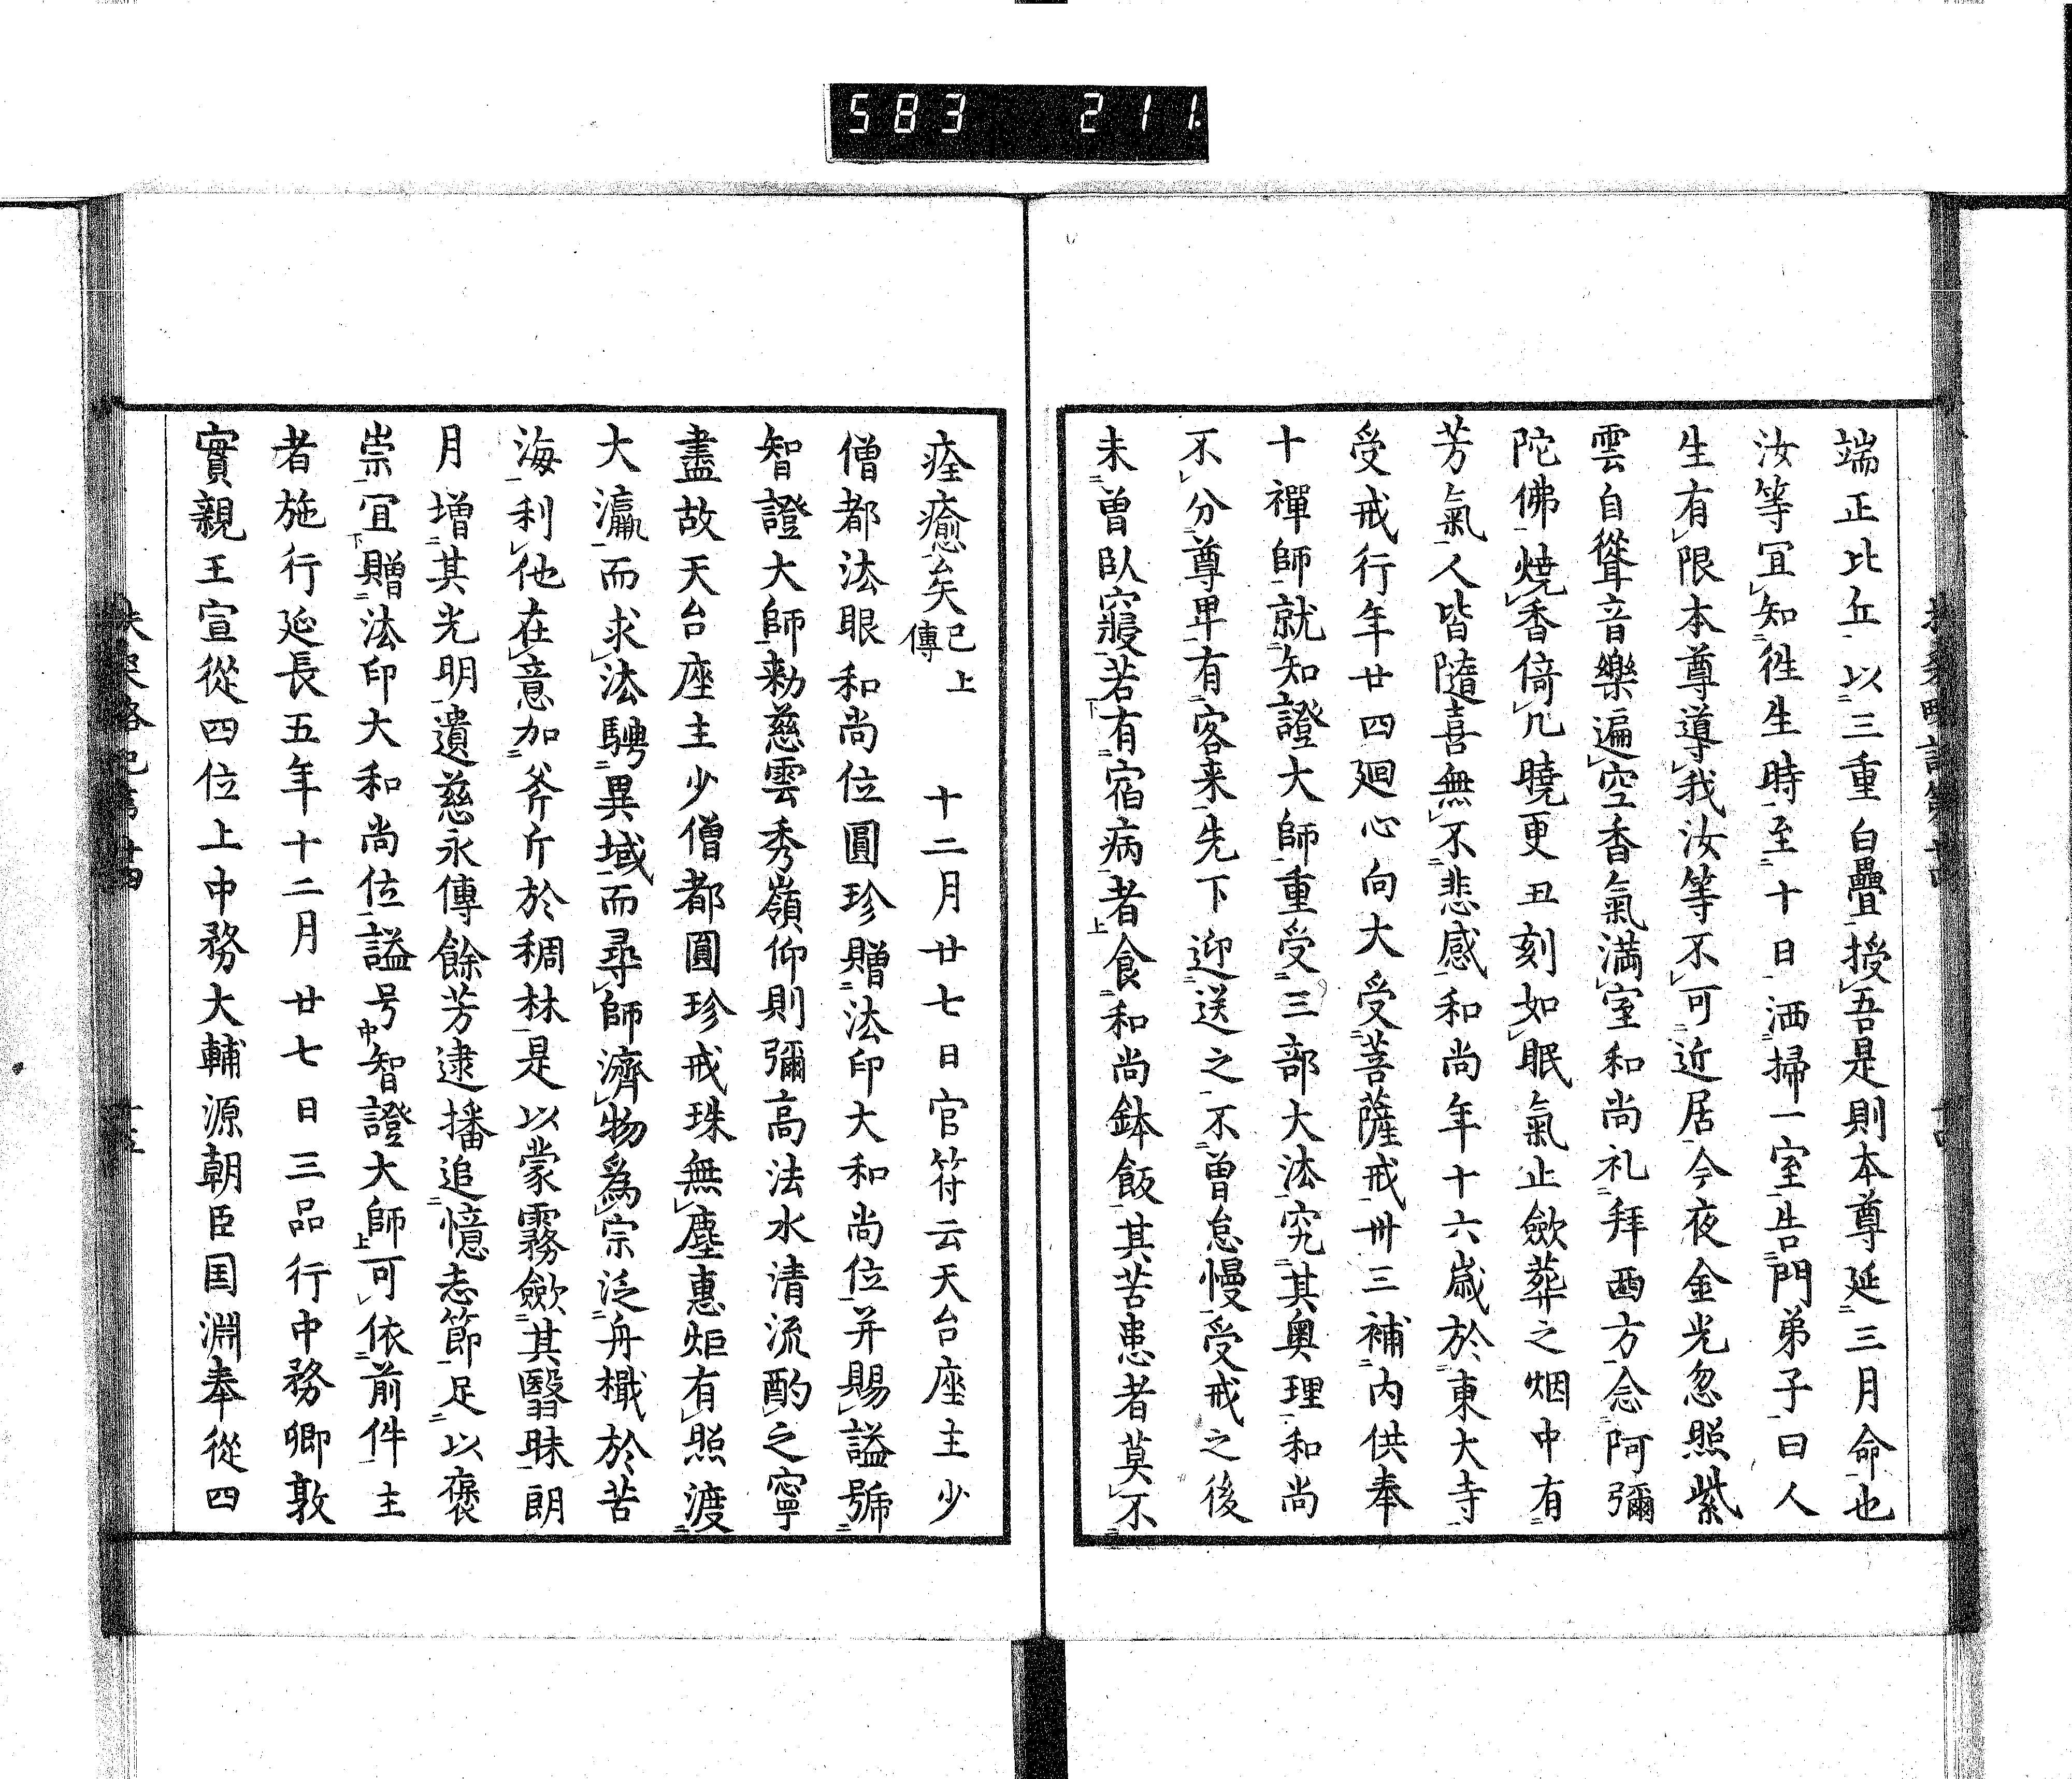 583 211.
端正比丘以三重白疊授吾是則本尊延三月命也
汝等宜知徃生時至十日洒掃一室告門弟子曰人
生有限本尊導我汝等不可近居今夜金光忽照紫
雲自聳音樂遍空香氣満室和尚礼拜西方念阿彌
陀佛燒香倚几曉更丑刻如眠氣止斂葬之烟中有
芳氣人皆隨喜無不悲感和尚年十六歳於東大寺
受戒行年廿四廻心向大受菩薩戒卅三補内供奉
十禪師就知證大師重受三部大法究其奧理和尚
不分尊卑有客来先下迎送之不曽怠慢受戒之後
未曽臥寢若有宿病者食和尚鉢飯其苦患者莫不
痊癒矣已上傳 十二月廿七日官符云天台座主少
僧都法眼和尚位圓珍贈法印大和尚位并賜諡號
智證大師勅慈雲秀嶺仰則彌高法水清流酌之寧
盡故天台座主少僧都圓珍戒珠無塵惠炬有照渡
大瀛而求法騁異域而尋師濟物爲宗泛舟檝於苦
海利他在意加斧斤於稠林是以蒙霧斂其翳昧朗
月増其光明遺慈永傳餘芳逮播追憶志節足以褒
崇宜贈法印大和尚位諡号智證大師可依前件主
者施行延長五年十二月廿七日三品行中務卿敦
實親王宣從四位上中務大輔源朝臣国淵奉從四